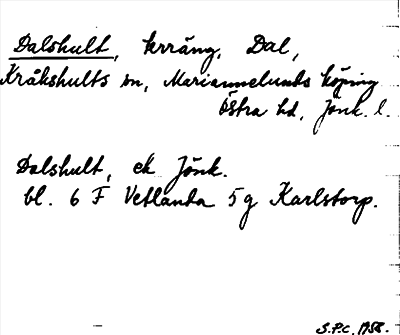 Dalshult, terräng, Dal,
Kråkshults sn, Mariannelunds köping
Östra hd, Jönk. l.
Dalshult, ek Jönk.
bl. 6 F Vetlanda 5 g Karlstorp.
S.P.C. 1958.